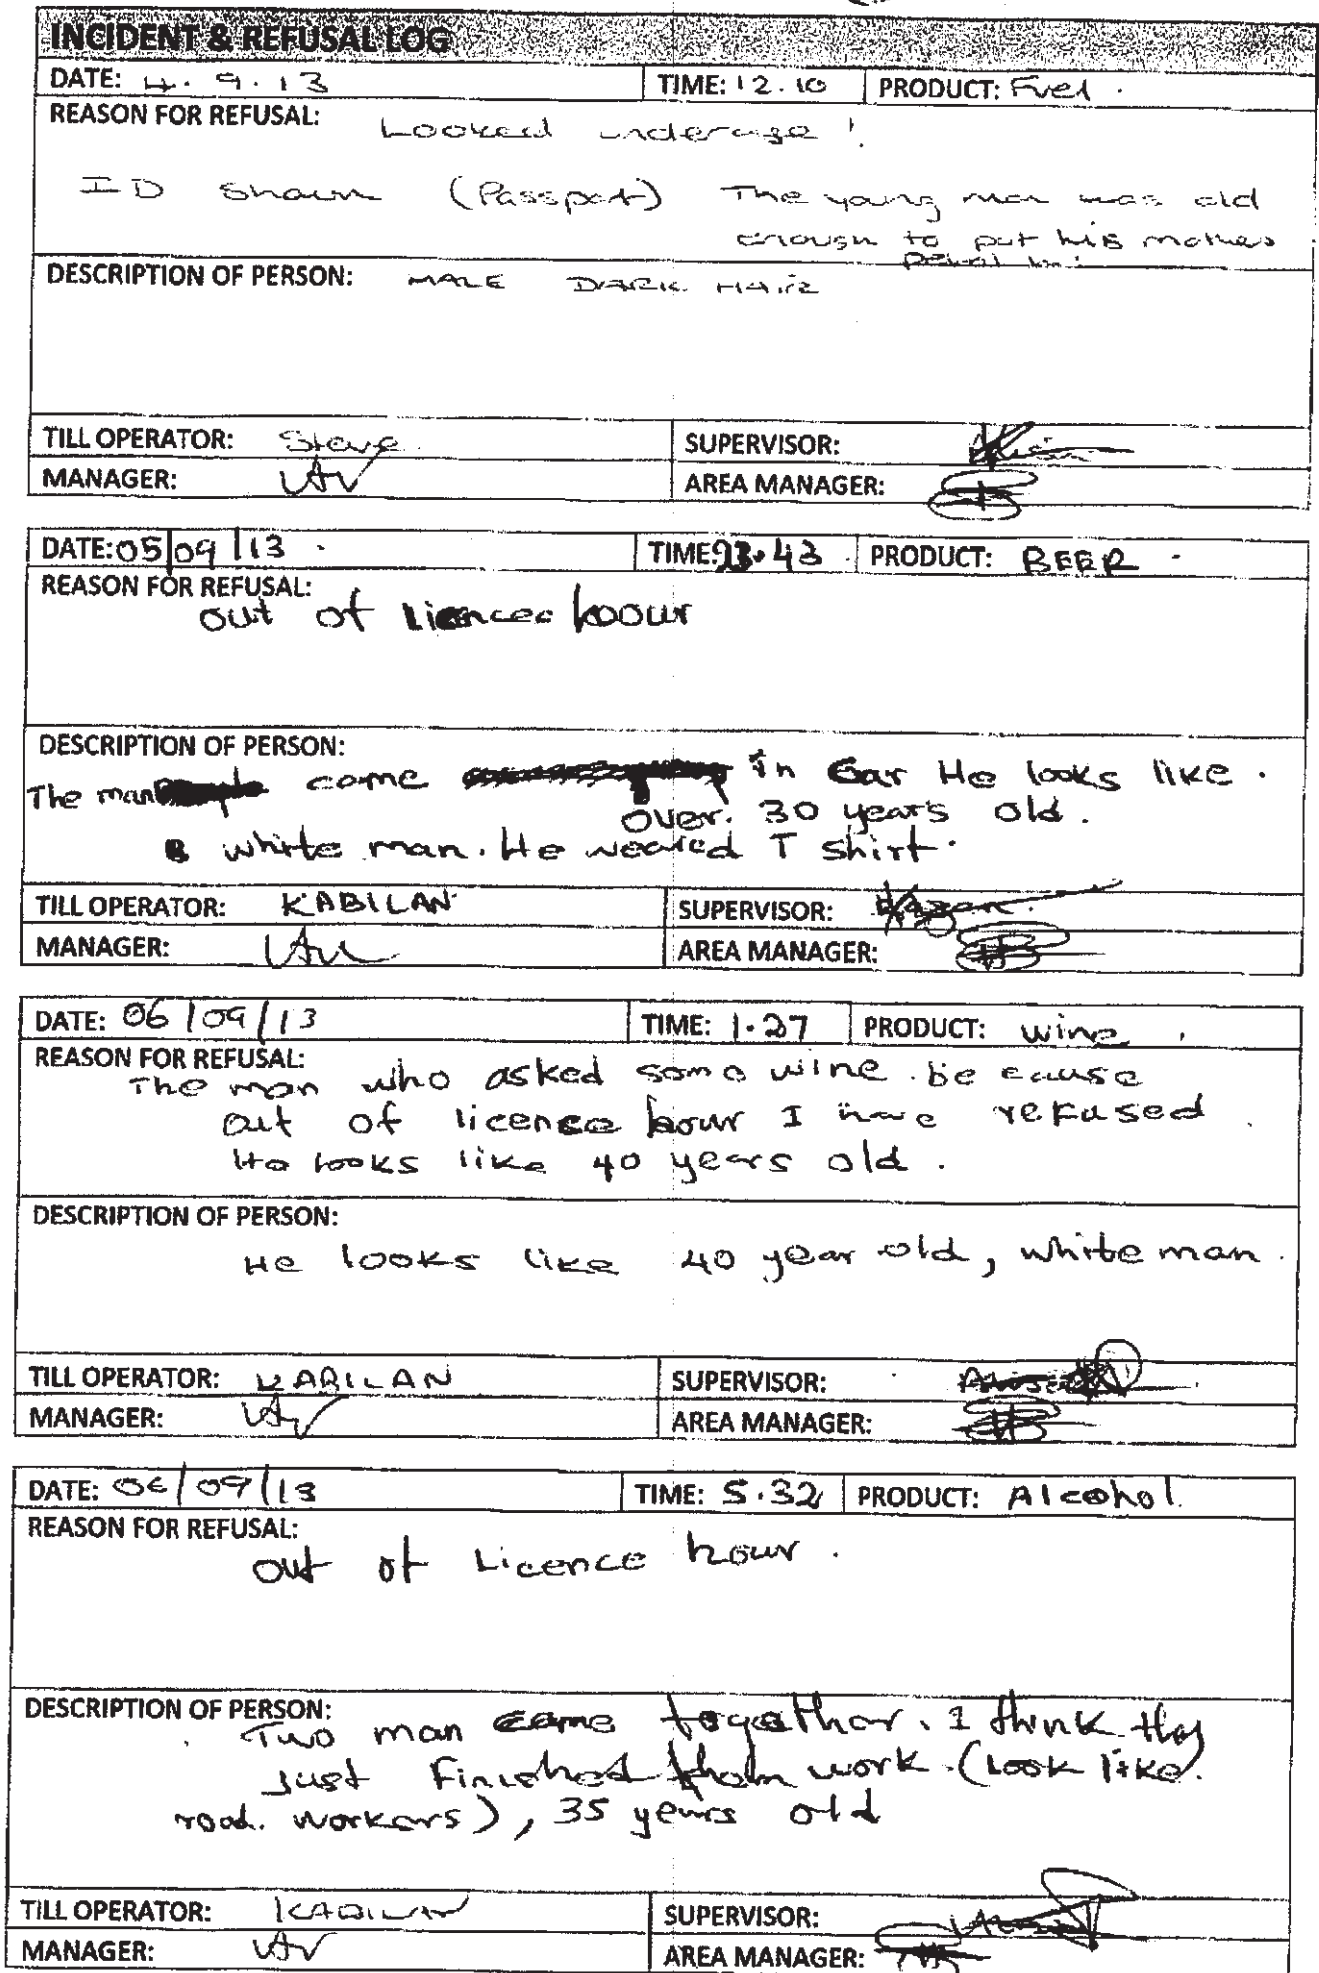 INCIDENT & REFUSAL LOG
DATE: 4.9.13 TIME: 12.10 PRODUCT: Fuel.
REASON FOR REFUSAL: Looked underage!
ID shown (Passport) The young man was old
enough to put his mothers
petrol in!
DESCRIPTION OF PERSON: MALE DARK HAIR
TILL OPERATOR: Steve SUPERVISOR:
MANAGER: AREA MANAGER:
DATE: 05/09/13 TIME: 23.43 PRODUCT: BEER
REASON FOR REFUSAL:
out of licence hour
DESCRIPTION OF PERSON:
The man came in car He looks like.
over. 30 years old.
white man. He weared T shirt.
TILL OPERATOR: KABILAN SUPERVISOR:
MANAGER: AREA MANAGER:
DATE: 06/09/13 TIME: 1.27 PRODUCT: wine
REASON FOR REFUSAL:
The man who asked some wine. because
out of licence hour I have refused.
He looks like 40 years old.
DESCRIPTION OF PERSON:
He looks like 40 year old, white man.
TILL OPERATOR: KABILAN SUPERVISOR:
MANAGER: AREA MANAGER:
DATE: 06/09/13 TIME: 5.32 PRODUCT: Alcohol.
REASON FOR REFUSAL:
out of Licence hour.
DESCRIPTION OF PERSON:
Two man came together. I think they
just finished work. (Look like
road. workers), 35 years old
TILL OPERATOR: KABILAN SUPERVISOR:
MANAGER: AREA MANAGER: